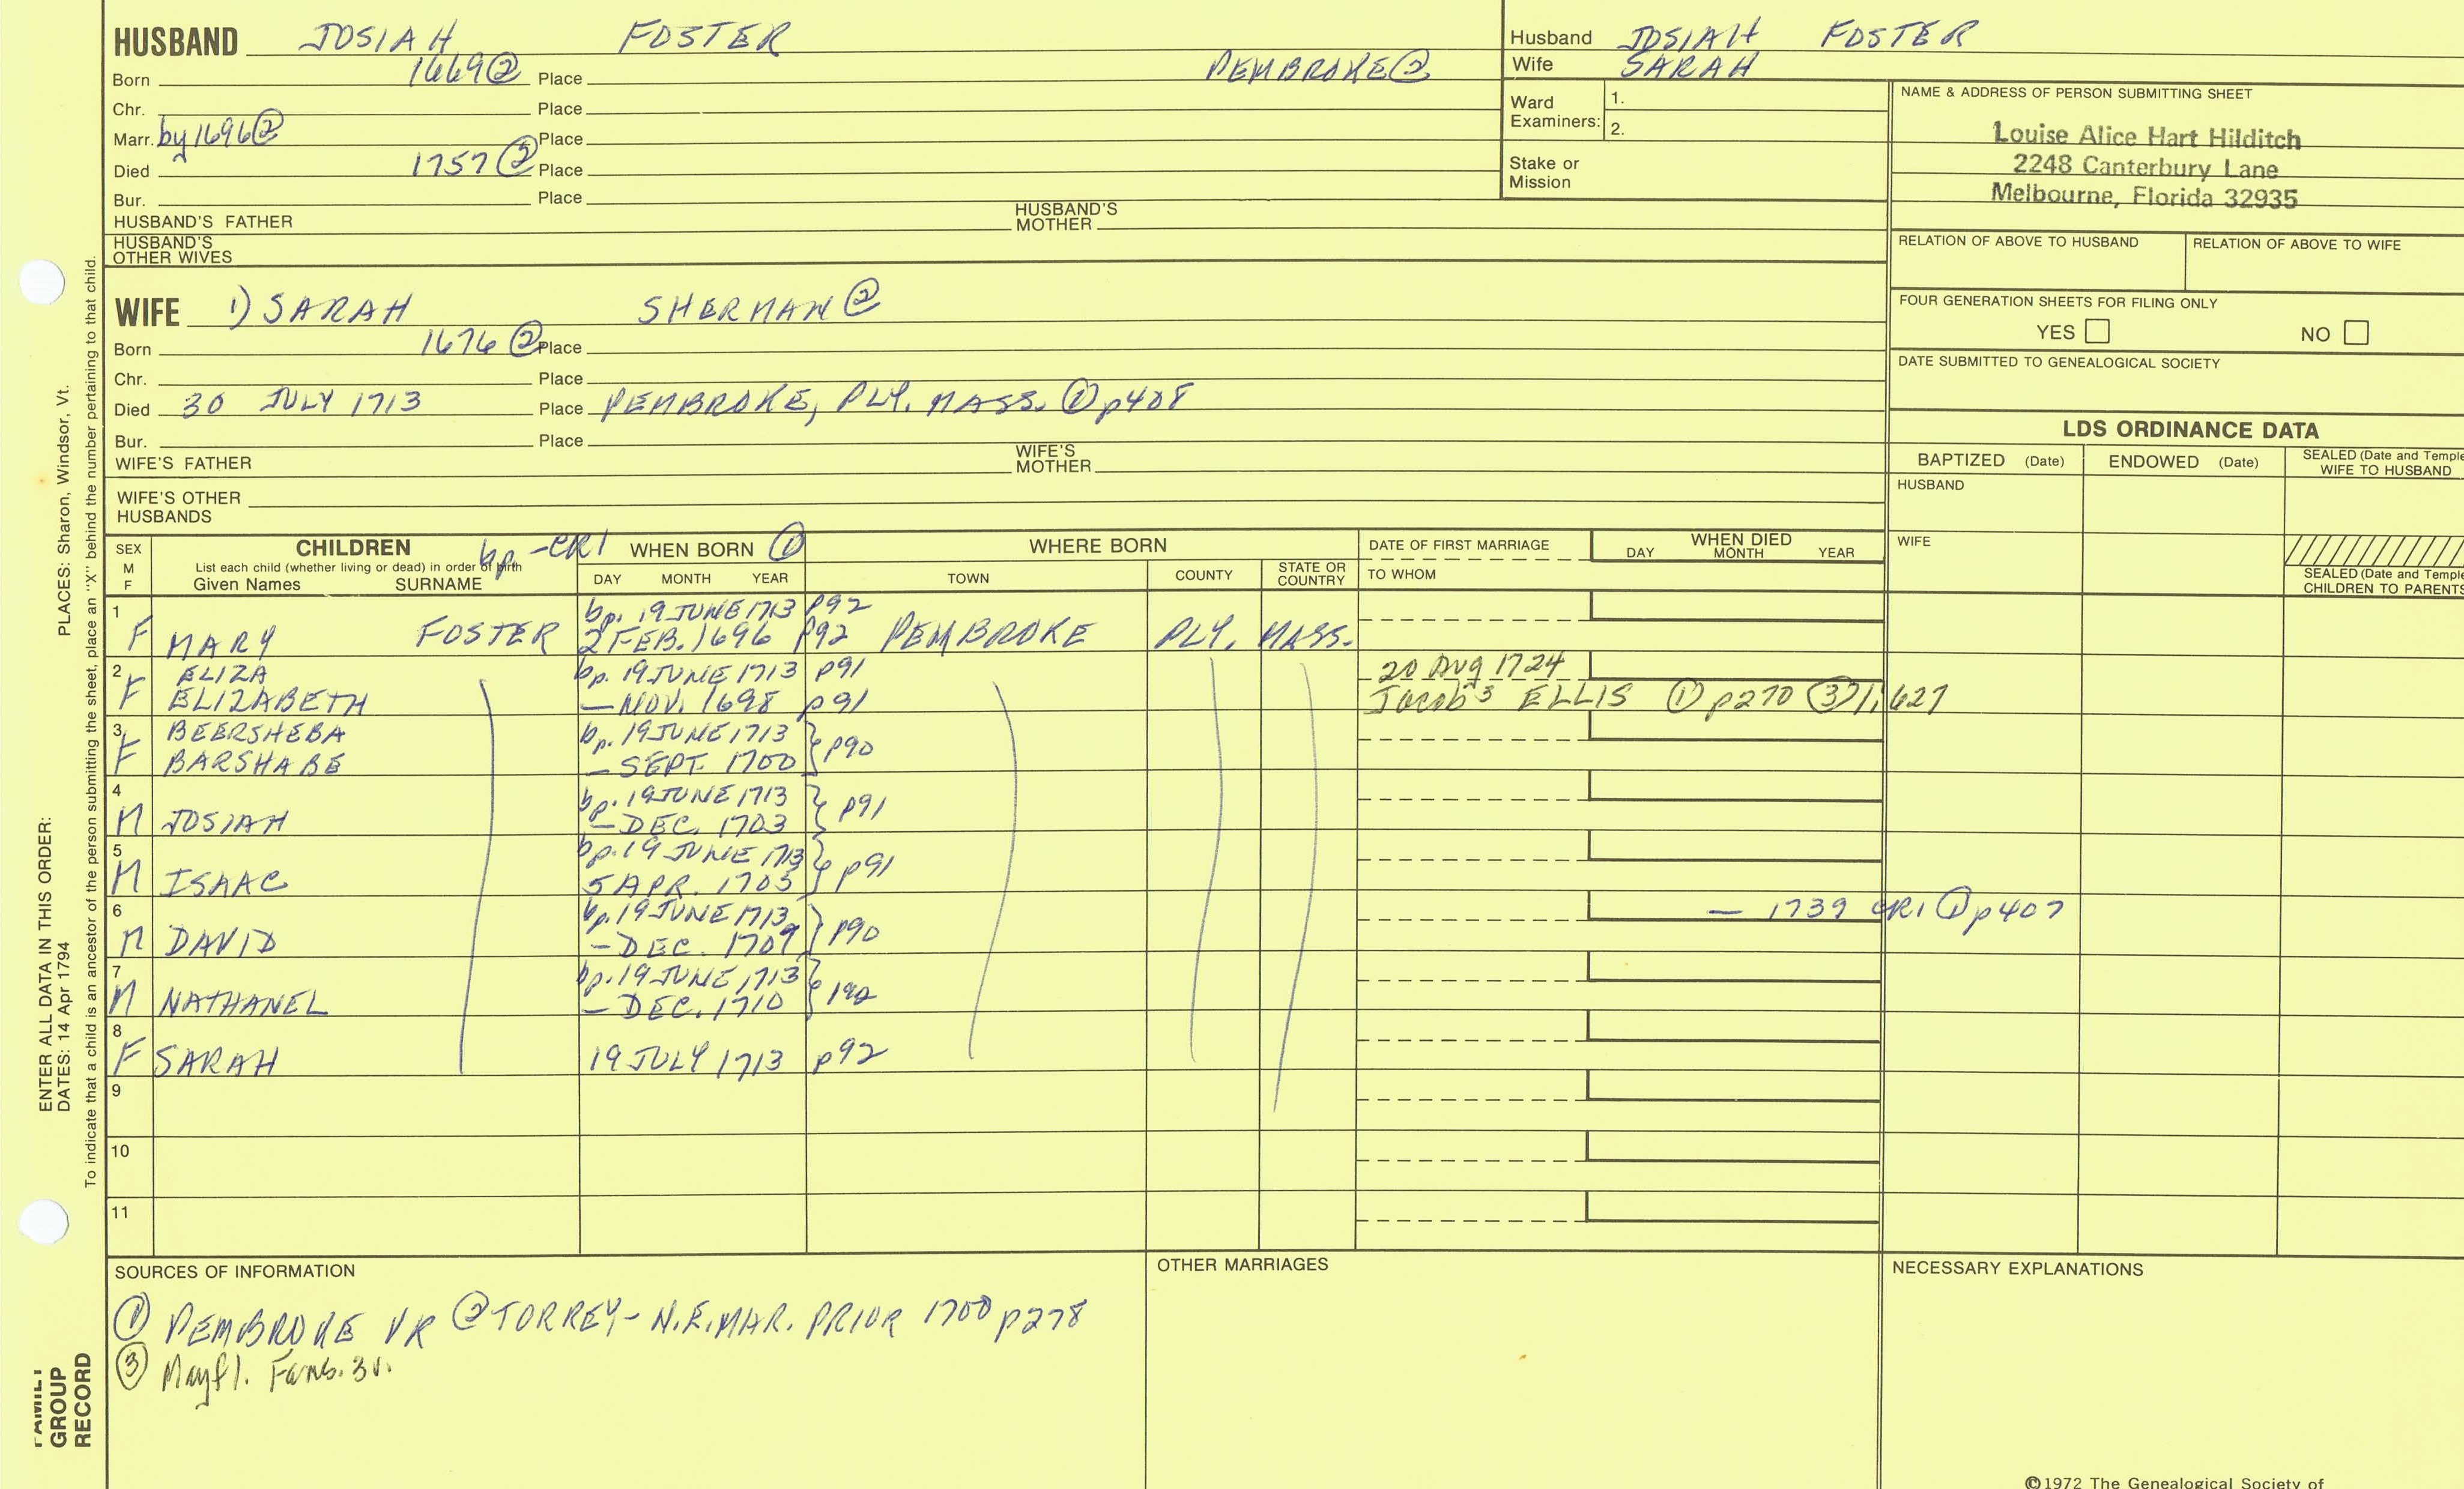 HUSBAND JOSIAH FOSTER
Born 1669② Place PEMBROKE②
Chr. Place
Marr. by 1696② Place
Died 1757② Place
Bur. Place
HUSBAND'S FATHER HUSBAND'S MOTHER
HUSBAND'S OTHER WIVES
Husband JOSIAH FOSTER
Wife SARAH
Ward Examiners: 1.
2.
Stake or Mission
NAME & ADDRESS OF PERSON SUBMITTING SHEET
Louise Alice Hart Hilditch
2248 Canterbury Lane
Melbourne, Florida 32935
RELATION OF ABOVE TO HUSBAND RELATION OF ABOVE TO WIFE
FOUR GENERATION SHEETS FOR FILING ONLY
YES NO
DATE SUBMITTED TO GENEALOGICAL SOCIETY
WIFE 1) SARAH SHERMAN②
Born 1676② Place
Chr. Place
Died 30 JULY 1713 Place PEMBROKE, PLY. MASS. ① p408
Bur. Place
WIFE'S FATHER WIFE'S MOTHER
WIFE'S OTHER HUSBANDS
LDS ORDINANCE DATA
BAPTIZED (Date) ENDOWED (Date) SEALED (Date and Temple
WIFE TO HUSBAND
HUSBAND
WIFE
SEALED (Date and Temple
CHILDREN TO PARENTS
SEX M F
CHILDREN bp-CR1 WHEN BORN ① WHERE BORN DATE OF FIRST MARRIAGE WHEN DIED
List each child (whether living or dead) in order of birth
Given Names SURNAME DAY MONTH YEAR TOWN COUNTY STATE OR COUNTRY TO WHOM DAY MONTH YEAR
1 bp. 19 JUNE 1713 p92
F MARY FOSTER 2 FEB. 1696 p92 PEMBROKE PLY. MASS.
2 ELIZA bp. 19 JUNE 1713 p91 20 Aug 1724
F ELIZABETH — NOV. 1698 p91 Jacob³ ELLIS ① p270 ③ 1:627
3 BEERSHEBA bp. 19 JUNE 1713 p90
F BARSHABE — SEPT. 1700
4 bp. 19 JUNE 1713 p91
M JOSIAH — DEC. 1703
5 bp. 19 JUNE 1713 p91
M ISAAC 5 APR. 1705
6 bp. 19 JUNE 1713 p90 — 1739 CR1 ① p407
M DAVID — DEC. 1709
7 bp. 19 JUNE 1713
M NATHANEL — DEC. 1710
8
F SARAH 19 JULY 1713 p92
9
10
11
SOURCES OF INFORMATION OTHER MARRIAGES NECESSARY EXPLANATIONS
① PEMBROKE VR ② TORREY - N.E. MAR. PRIOR 1700 p278
③ Mayfl. Fams. 3v.
©1972 The Genealogical Society of
PLACES: Sharon, Windsor, Vt.
ENTER ALL DATA IN THIS ORDER:
DATES: 14 Apr 1794
To indicate that a child is an ancestor of the person submitting the sheet, place an "X" behind the number pertaining to that child.
FAMILY
GROUP
RECORD